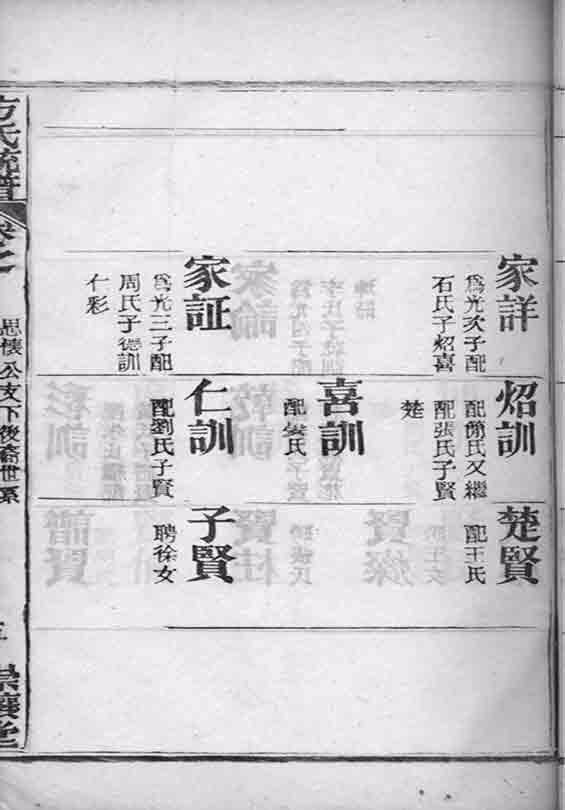 家詳
爲光次子配
石氏子炤喜
家証
爲光三子配
周氏子德訓
仁彩
炤訓
配簡氏又繼
配張氏子賢
楚
喜訓
仁訓
配劉氏子賢
楚賢
配王氏
子賢
聘徐女
方氏統譜
思懷公支下後裔世系